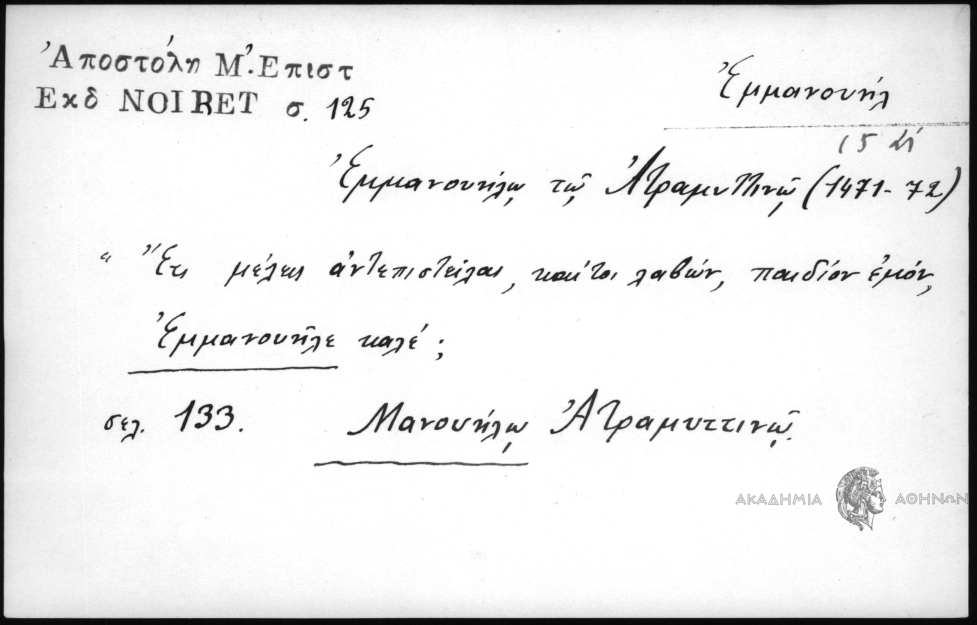 Ἀποστόλη Μ. Ἐπιστ
Εκδ NOIRET σ. 125
Ἐμμανουήλ
15 αἰ
Ἐμμανουήλῳ τῷ Ἀτραμυττινῷ (1471-72)
" Ἔτι μέλεις ἀντεπιστεῖλαι, καίτοι λαβών, παιδίον ἐμόν,
Ἐμμανουῆλε καλέ ;
σελ. 133. Μανουήλῳ Ἀτραμυττινῷ.
ΑΚΑΔΗΜΙΑ ΑΘΗΝΩΝ